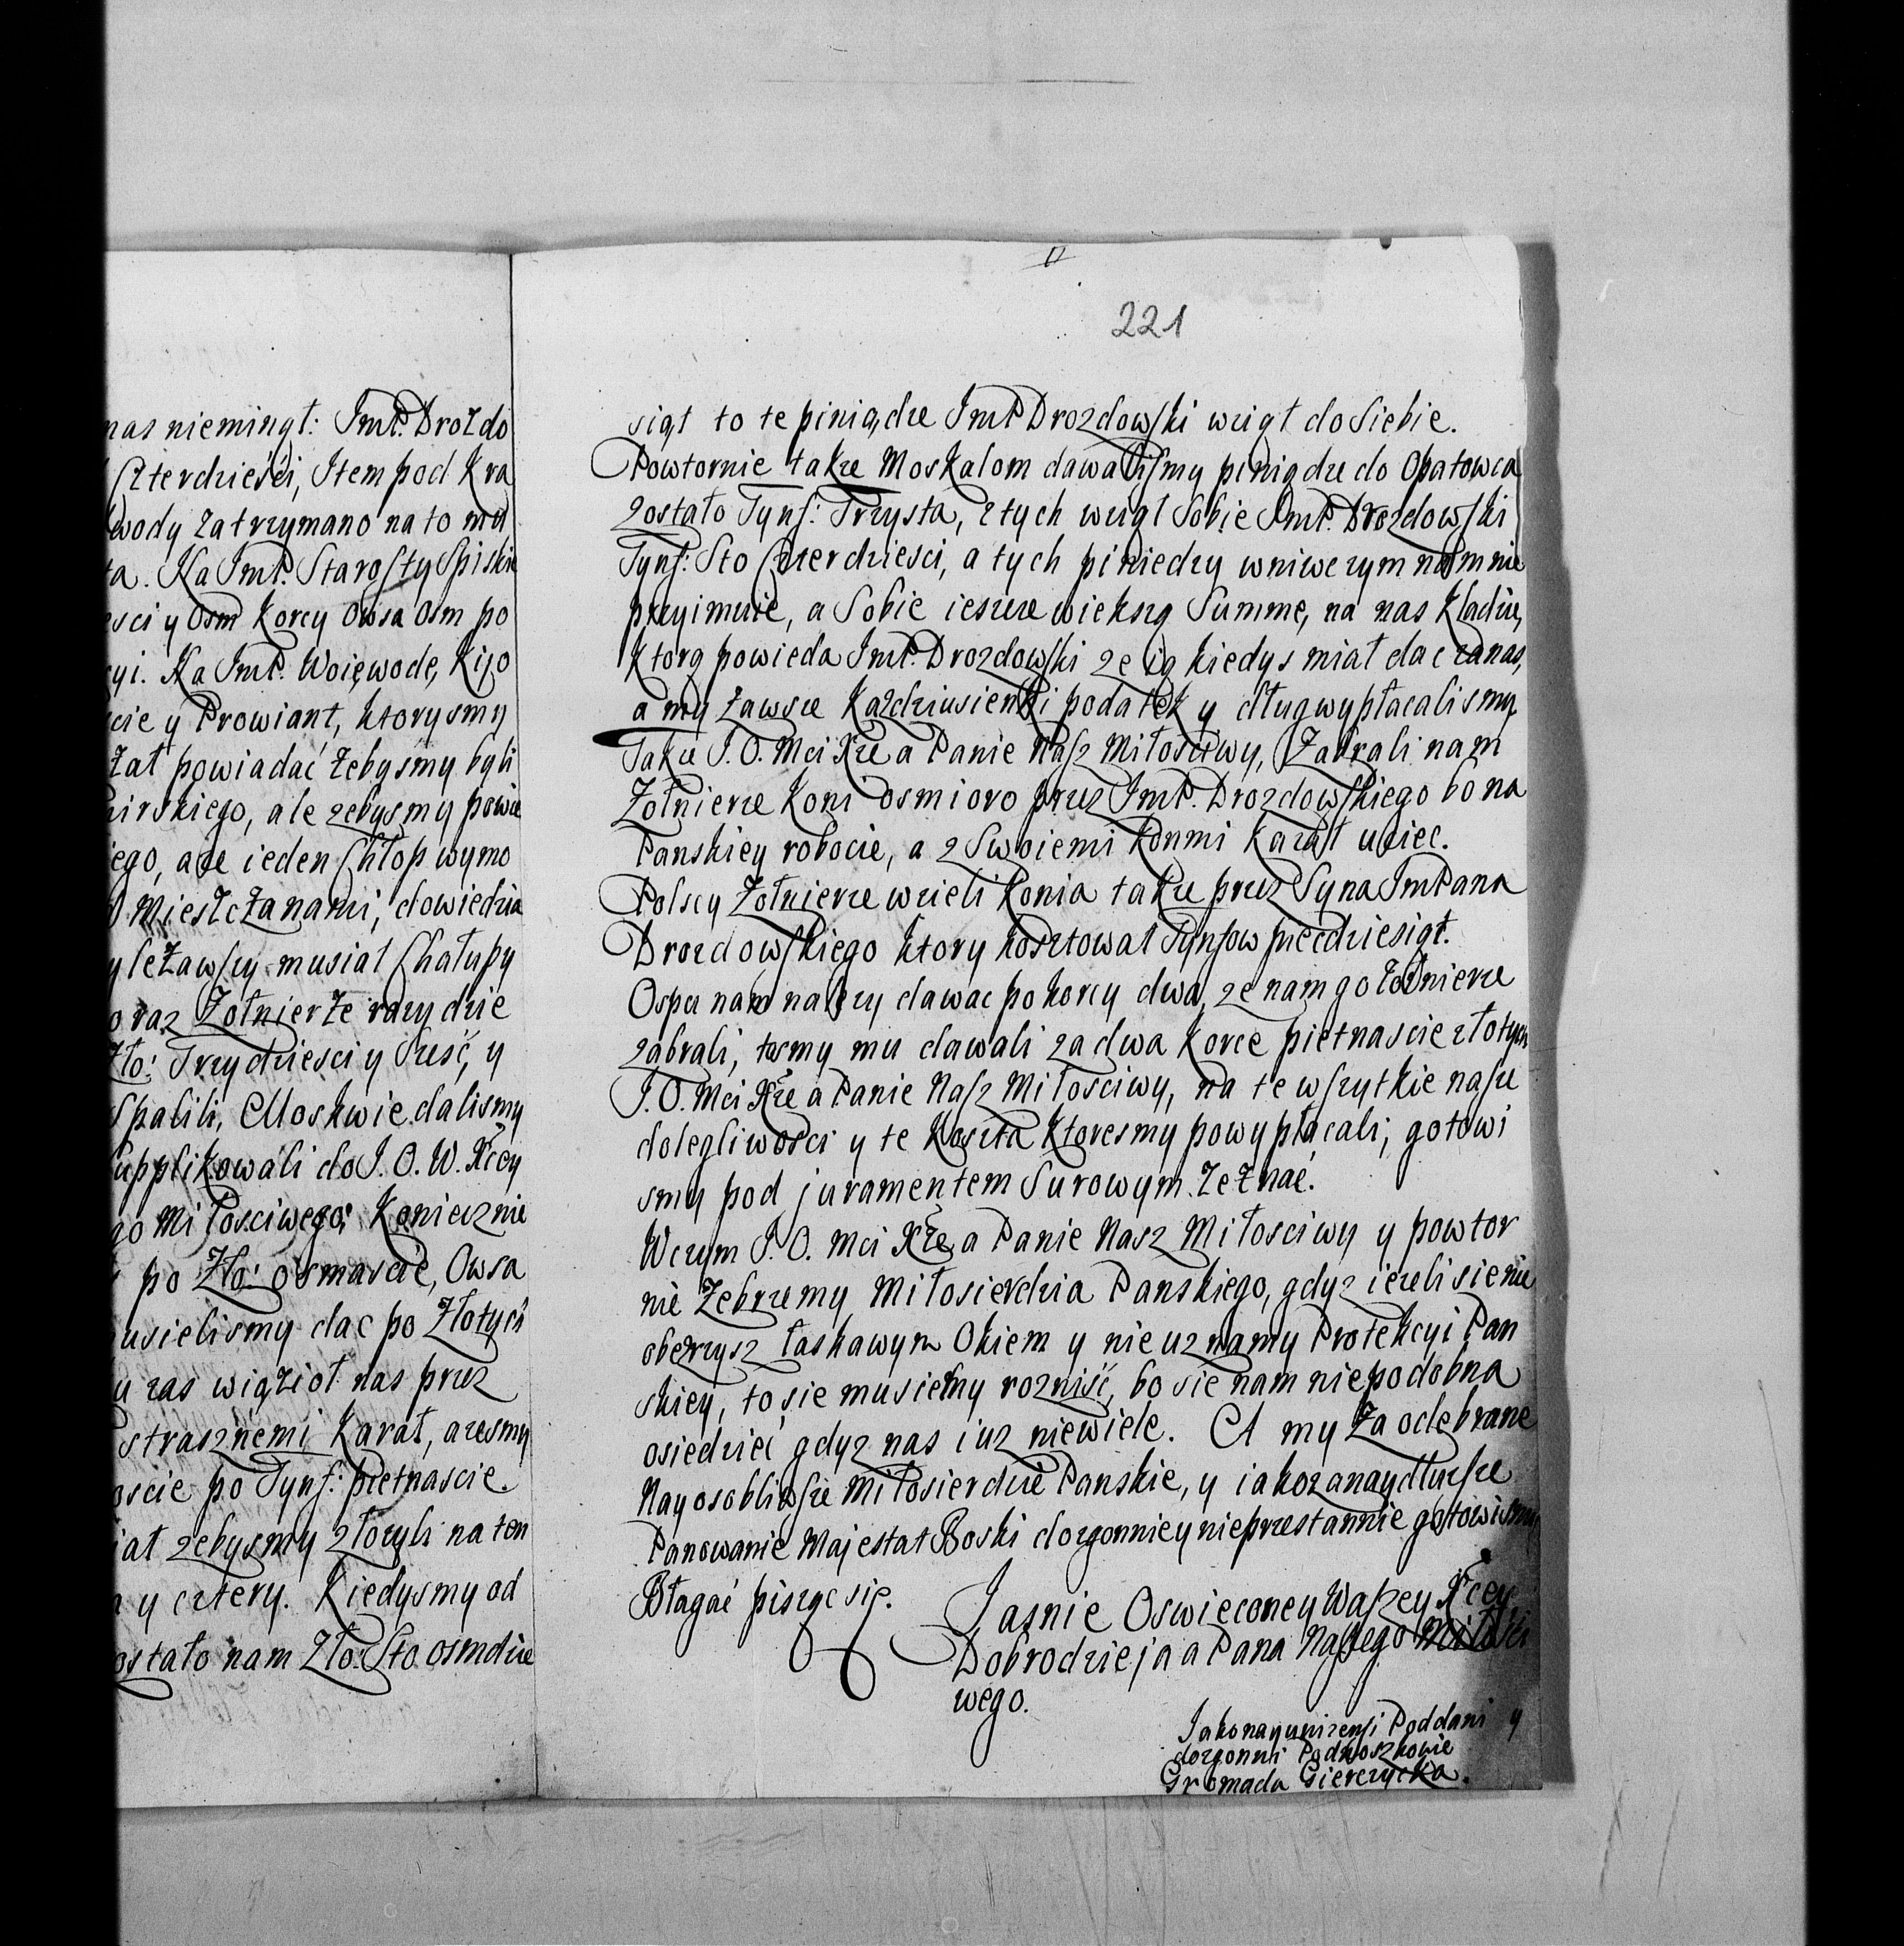 nas nieminął: JmP. Drozdo
Czterdzieści, Item pod Kra
wody zatrzymano na to mu
ta. Na JmP. Starosty Spiskie
esci y Osm Korcy Owsa Osm po
cyi. Na JmP. Woiewodę, Kijo
cie y Prowiant, ktorysmy
zał powiadać żebysmy byli
irskiego, ale zebysmy powie
iego, aże ieden Chłop wymo
Miesczanami, dowiedzia
yleżawszy musiał Chałupy
oraz Żołnierze razy dzie
Zło: Trzydziesci y Sześć, y
Spalili, Moskwie dalismy
upplikowali do J. O. W. Xcey
go Miłosciwego; Koniecznie
po Zło: osmascie, Owsa
usielismy dac po Złotych
u zas wiąziół nas przez
strasznemi Karał, azesmy
oscie po Tynf: pietnascie.
iał zebysmy złozyli na ten
y cztery. Kiedysmy od
ostało nam Zło: Sto osmdzie
221
siąt to te piniądze JmP Drozdowski wziął do Siebie.
Powtornie takze Moskalom dawalismy piniądze do Opatowca
zostało Tynf: Trzysta, z tych wziął Sobie JmP. Drozdowski
Tynf: Sto Czterdziesci, a tych piniedzy wniwczym nam nie
przyimuie, a Sobie ieszcze wiekszą Summe, na nas Kładzie,
Ktorą powieda JmP. Drozdowski ze ią kiedys miał dac za nas,
a my zawsze Kazdziusienki podatek y dług wypłacalismy.
Takze J. O. Mci Xze a Panie Nasz Miłosciwy, Zabrali nam
Żołnierze Koni osmioro przez JmP. Drozdowskiego bo na
Panskiey robocie, a z Swoiemi Konmi Kazał uciec.
Polscy Żołnierze wzieli Konia takze przez Syna JmPana
Drozdowskiego ktory kosztował Tynfow piecdziesiąt.
Ospu nam nalezy dawac po korcy dwa, ze nam go Żołnierze
zabrali, tosmy mu dawali za dwa Korce pietnascie złotych
J. O. Mci Xze a Panie Nasz Miłosciwy, na te wszytkie nasze
dolegliwosci y te Koszta Ktoresmy powypłacali, gotowi
smy pod juramentem Surowym zeznać.
Wczym J. O. Mci Xze a Panie Nasz Miłosciwy y powtor
nie Żebrzemy Miłosierdzia Panskiego, gdyz iezeli sie nie
obezrzysz łaskawym Okiem y nie uznamy Protekcyi Pan
skiey, to sie musiemy roznijść, bo sie nam niepodobna
osiedzieć gdyz nas iuz niewiele. A my za odebrane
Nayosobliwsze Miłosierdzie Panskie, y iako za naydłuzsze
Panowanie Majestat Boski dozgonnie y nieprzestannie gotowismy
Błagać pisząc się.
Jasnie Oswieconey Waszey Xcey
Dobrodzieja a Pana Naszego Miłosci
wego.
Jako nayunizensi Poddani y
dozgonni Podnoszkowie
Gromada Gierczycka.